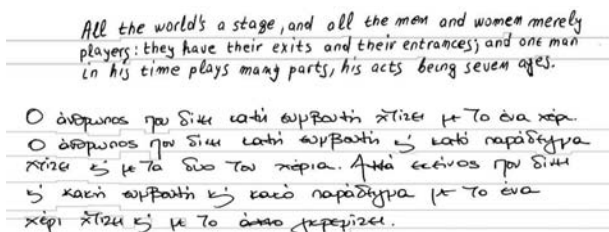 All the world's a stage, and all the men and women merely
players: they have their exits and their entrances; and one man
in his time plays many parts, his acts being seven ages.
Ο άνθρωπος που δίνει καλή συμβουλή χτίζει με το ένα χέρι.
Ο άνθρωπος που δίνει καλή συμβουλή κ' καλό παράδειγμα
χτίζει κ' με τα δυο του χέρια. Αλλά εκείνος που δίνει
κ' καλή συμβουλή κ' κακό παράδειγμα με το ένα
χέρι χτίζει κ' με το γκρεμίζει.